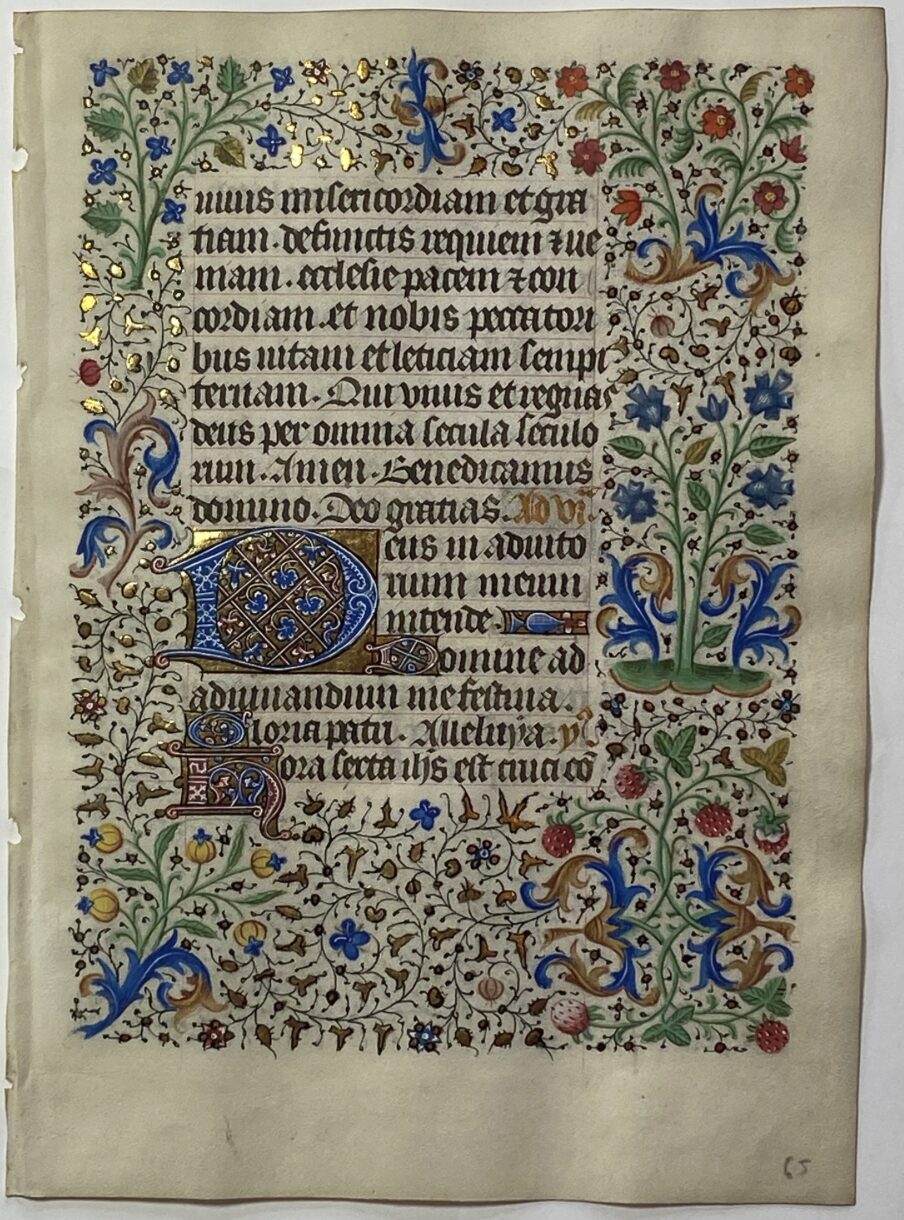 uiuis misericordiam et gra
tiam. defunctis requiem ⁊ ue
niam. ecclesie pacem ⁊ con
cordiam. et nobis peccatori
bus uitam et leticiam sempi
ternam. Qui viuis et regnas
deus per omnia secula seculo
rum. Amen. Benedicamus
domino. Deo gratias. Ad vi.
Deus in adiuto
rium meum
intende.
Domine ad
adiuuandum me festina.
Gloria patri. Alleluya. y
Hora sexta ihs est cruci cō
65